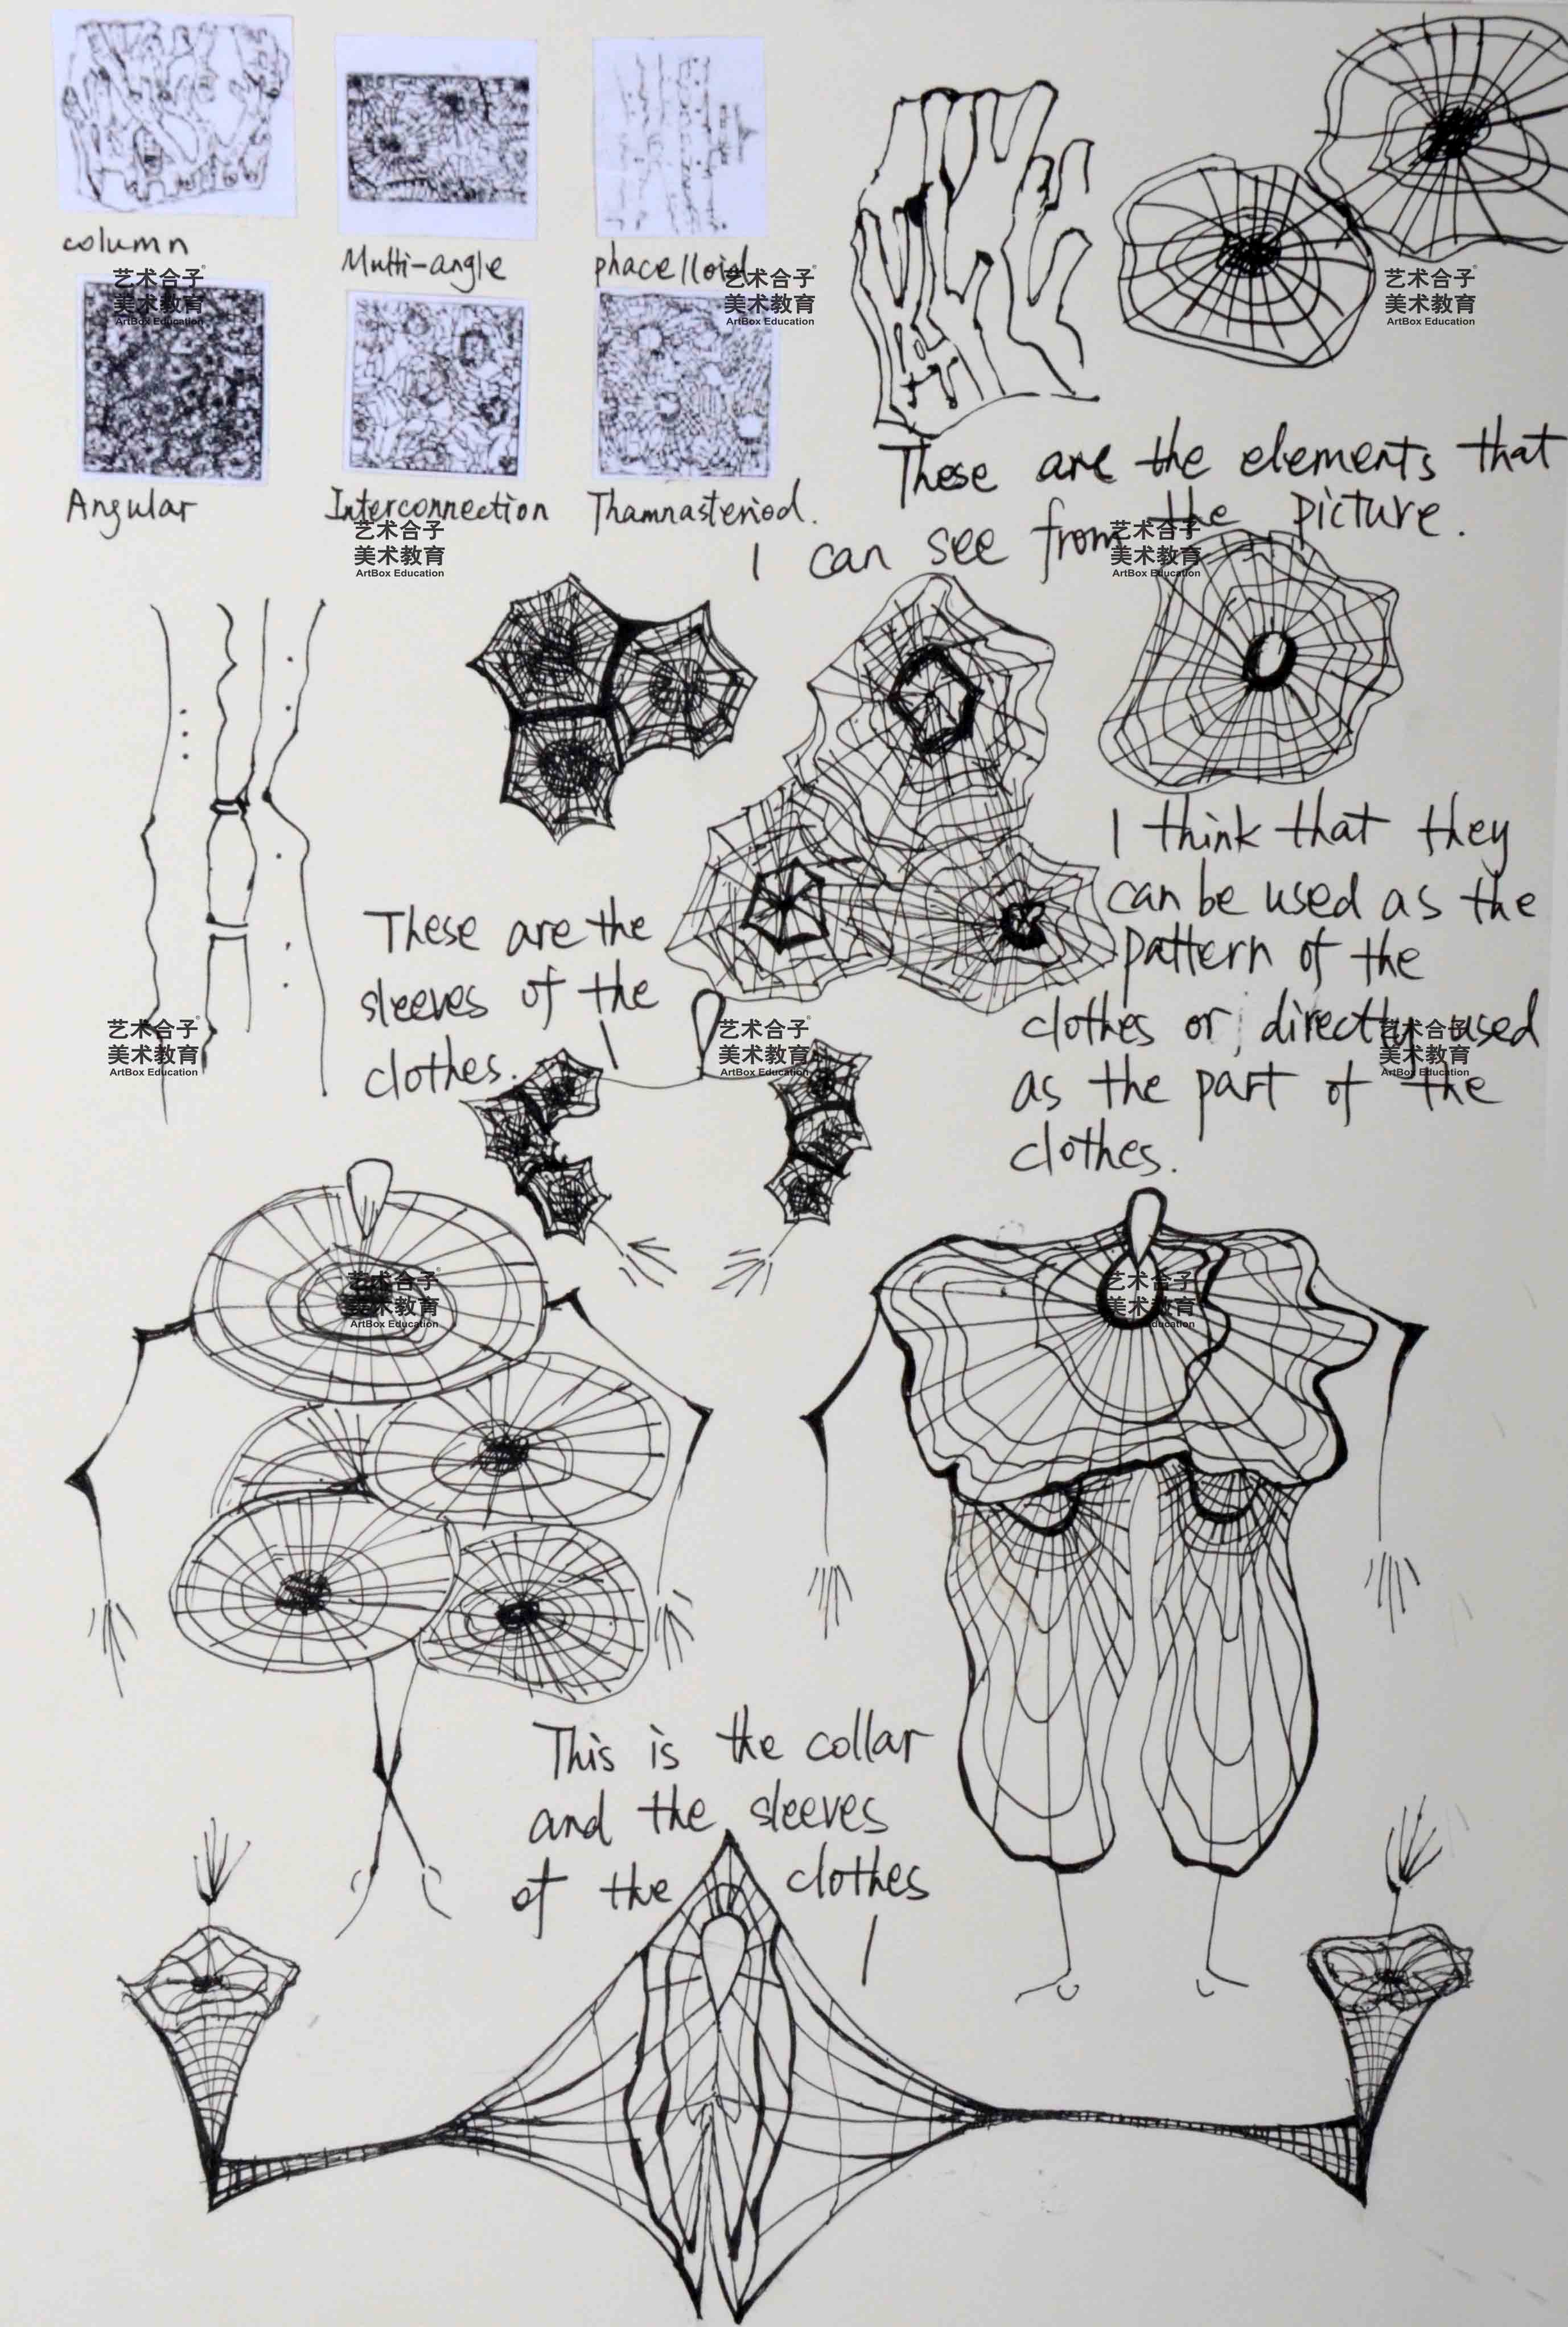 column
Multi-angle
phacelloid
Angular
Interconnection
Thamnasteriod.
These are the elements that
I can see from the picture.
These are the
sleeves of the
clothes.
I think that they
can be used as the
pattern of the
clothes or, directly used
as the part of the
clothes.
This is the collar
and the sleeves
of the clothes
艺术合子®
美术教育
ArtBox Education
艺术合子®
美术教育
ArtBox Education
艺术合子®
美术教育
ArtBox Education
艺术合子®
美术教育
ArtBox Education
艺术合子®
美术教育
ArtBox Education
艺术合子®
美术教育
ArtBox Education
艺术合子®
美术教育
ArtBox Education
艺术合子®
美术教育
ArtBox Education
艺术合子®
美术教育
ArtBox Education
艺术合子®
美术教育
ArtBox Education